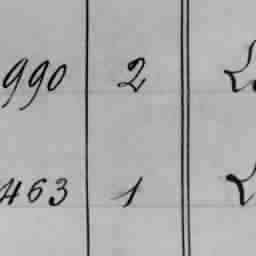 990 2
463 1